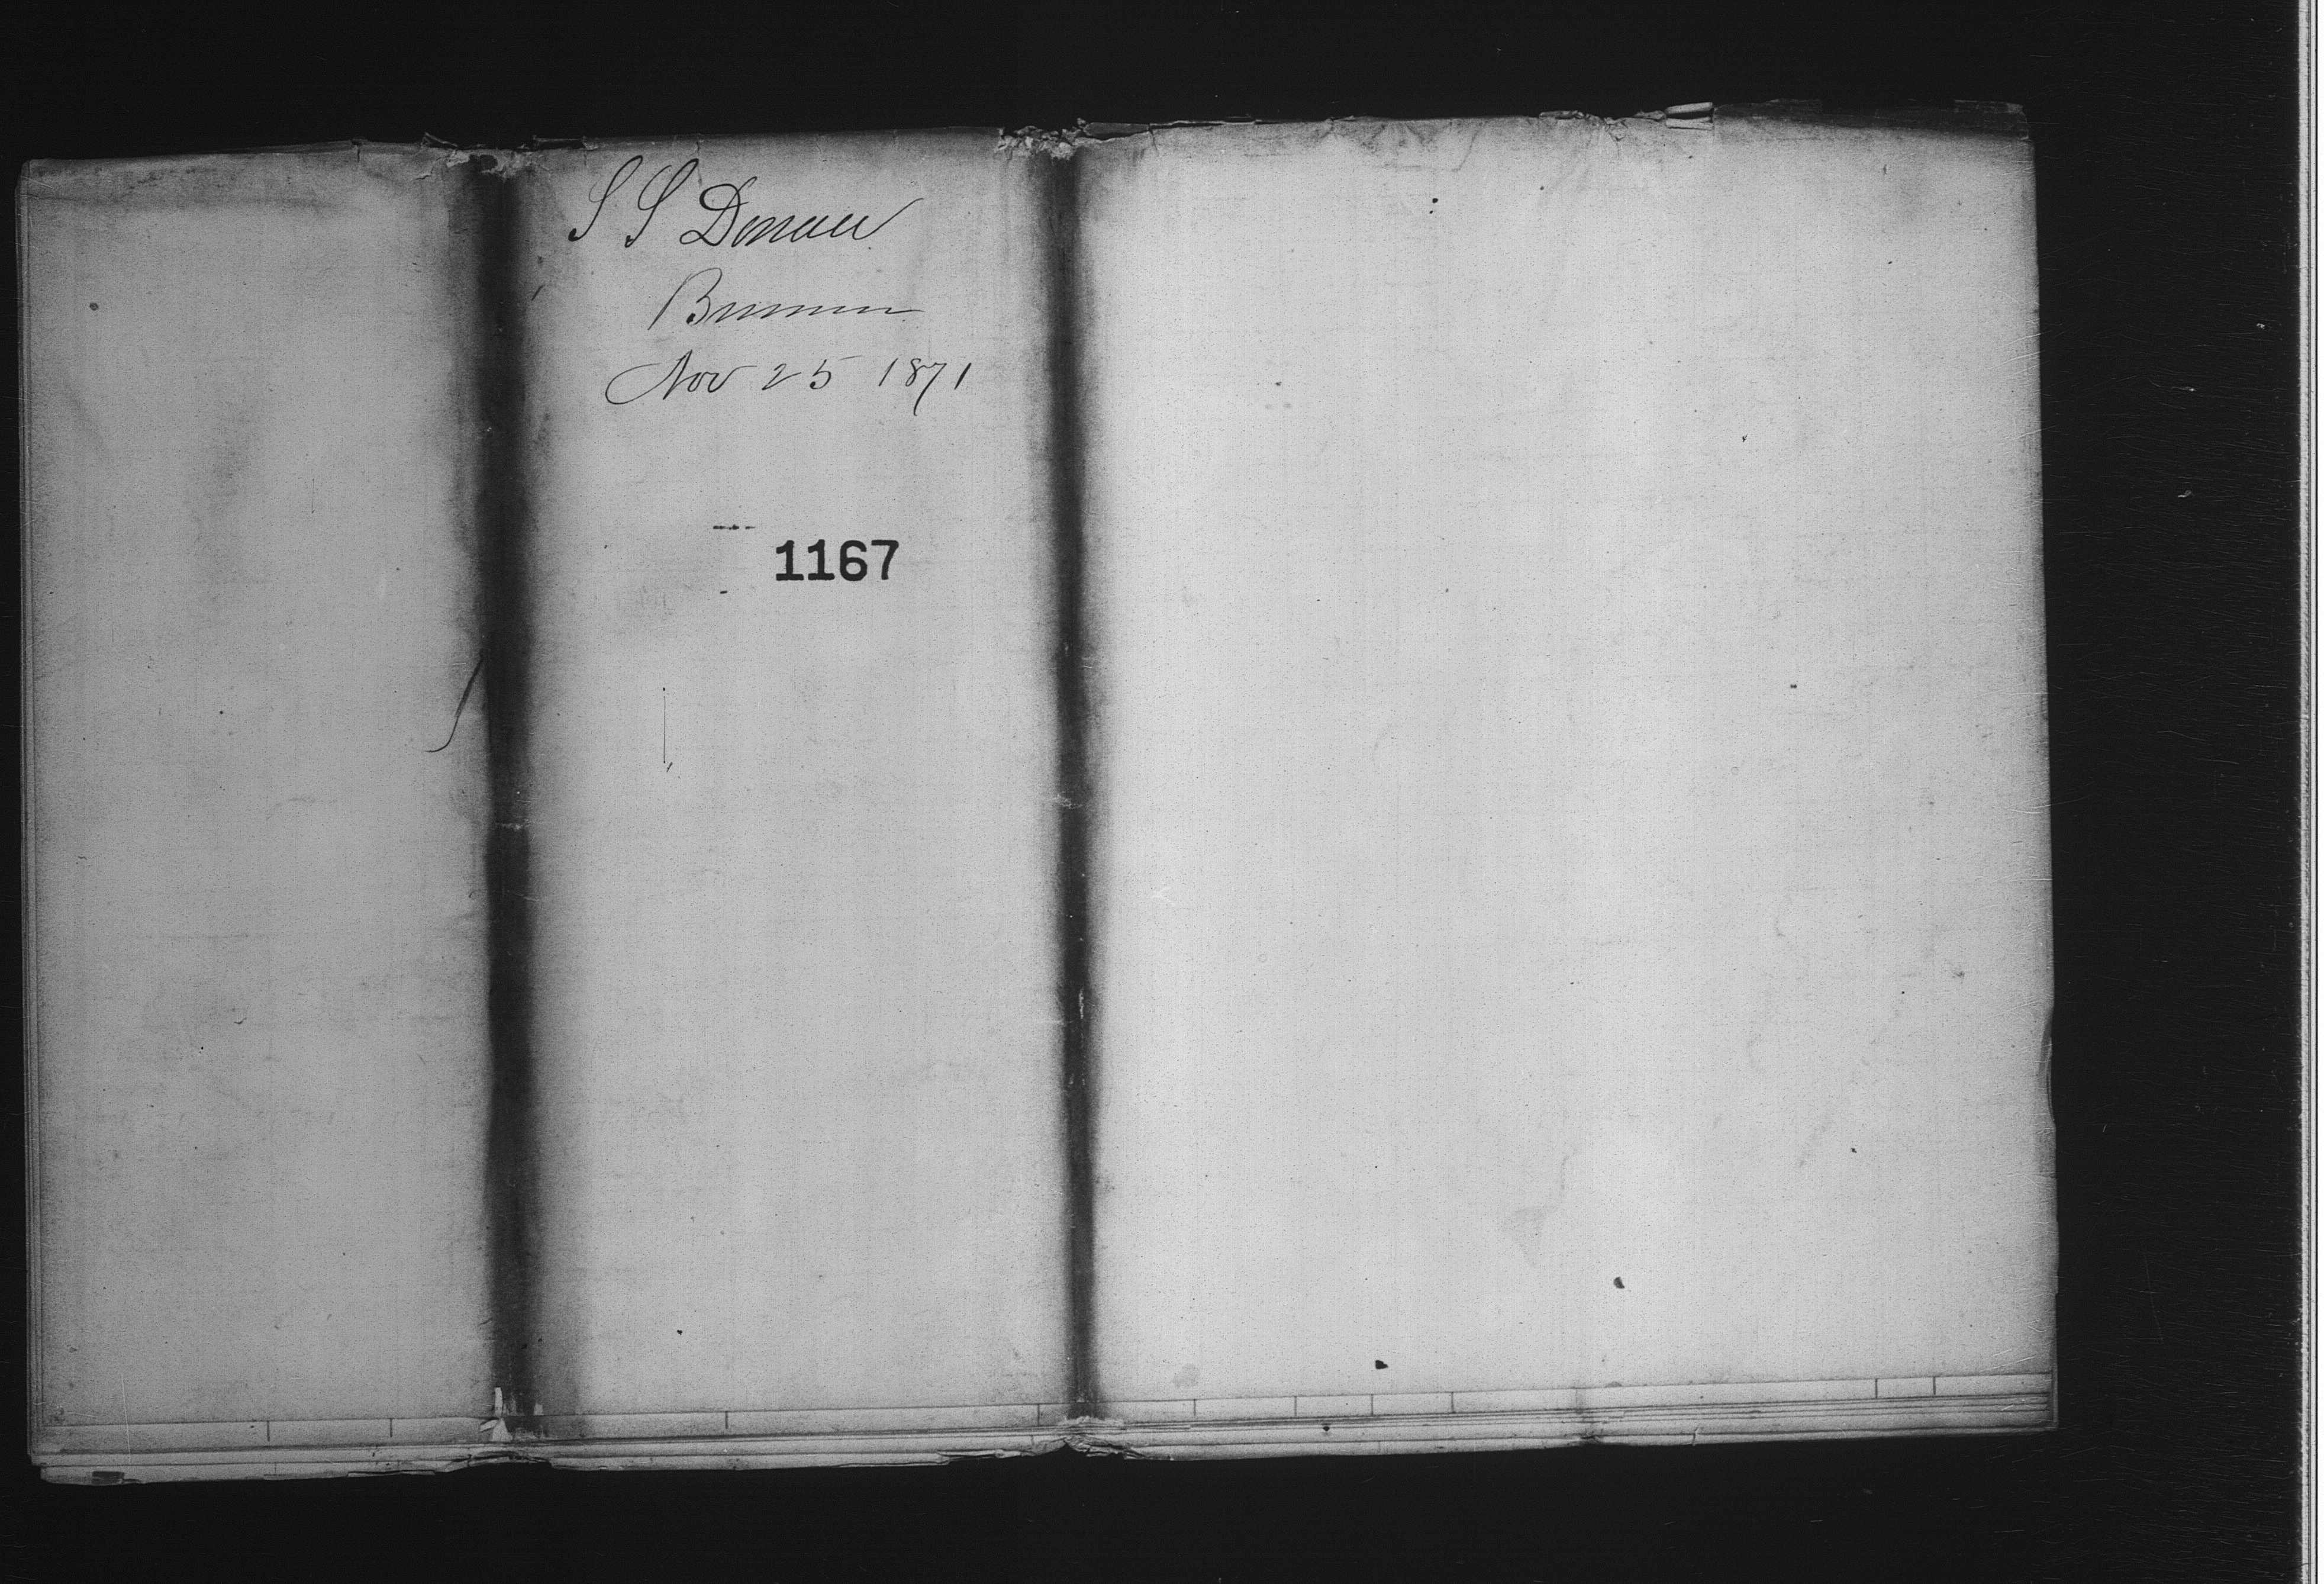 S S Donau
Bremen
Nov 25 1871
1167